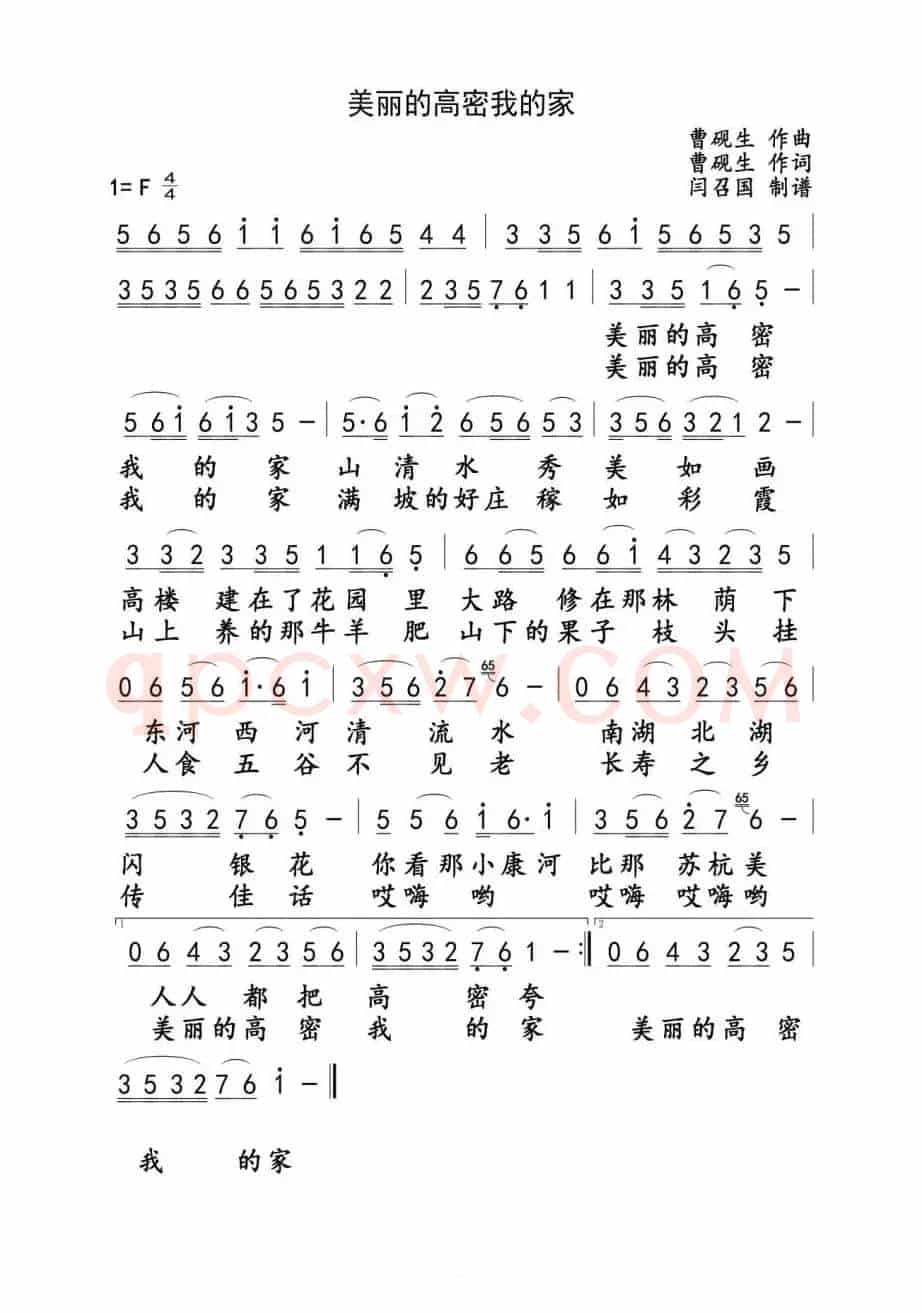 美丽的高密我的家
曹砚生 作曲
曹砚生 作词
1= F 4/4 闫召国 制谱
5 6 5 6 i i 6 i 6 5 4 4 | 3 3 5 6 i 5 6 5 3 5 |
3 5 3 5 6 6 5 6 5 3 2 2 | 2 3 5 7 6 1 1 | 3 3 5 1 6 5 – |
美丽的高 密
美丽的高 密
5 6 i 6 i 3 5 – | 5· 6 i 2 6 5 6 5 3 | 3 5 6 3 2 1 2 – |
我 的 家 山 清 水 秀 美 如 画
我 的 家 满 坡的好庄 稼 如 彩 霞
3 3 2 3 3 5 1 1 6 5 | 6 6 5 6 6 i 4 3 2 3 5 |
高楼 建在了花园 里 大路 修在那林 荫 下
山上 养的那牛羊 肥 山下的果子 枝 头 挂
qpcxw.COM
0 6 5 6 i· 6 i | 3 5 6 2 7 65 6 – | 0 6 4 3 2 3 5 6 |
东河 西 河 清 流 水 南湖 北 湖
人食 五 谷 不 见 老 长寿 之 乡
3 5 3 2 7 6 5 – | 5 5 6 i 6· i | 3 5 6 2 7 65 6 – |
闪 银 花 你看那小康河 比那 苏杭美
传 佳 话 哎嗨 哟 哎嗨 哎嗨哟
1 2
0 6 4 3 2 3 5 6 | 3 5 3 2 7 6 1 – :| 0 6 4 3 2 3 5 |
人人 都 把 高 密夸
美丽的高 密 我 的 家 美丽的高 密
3 5 3 2 7 6 i – ‖
我 的家